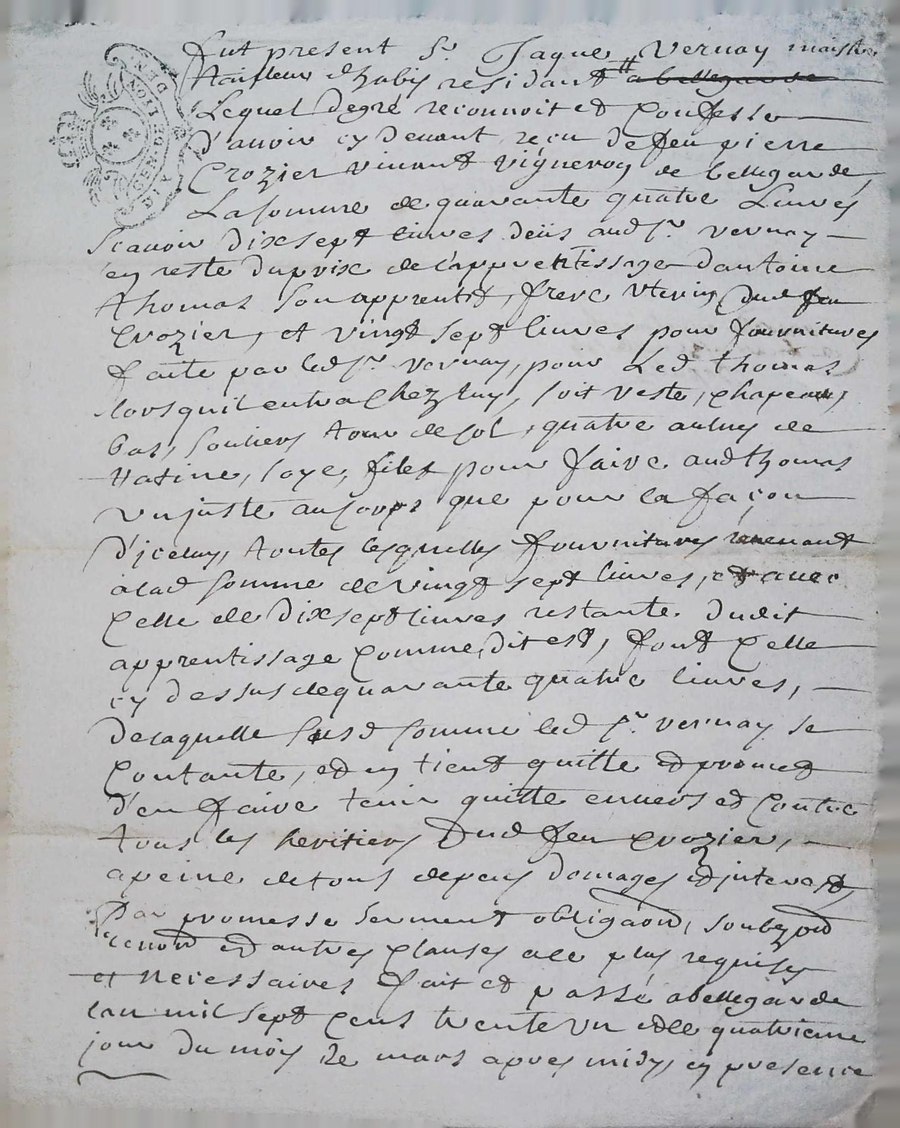 GEN. DE DIJON
fut present Sr. Jaque Vernay maistre
tailleur d'habis residant # a bellegarde
Lequel degré reconnoit et Confesse
d'avoir cy devant reçu de feu pierre
Crozier vivant vigneron de bellegarde,
La somme de quarante quatre Livres
scavoir dix sept livres deus aud Sr. vernay
en reste du prix de l'apprentissage d'antoine
thomas son apprentif, frere uterin dud feu
Crozier, et vingt sept livres pour fournitures
faite par led Sr. vernay, pour Led thomas
lorsquil entra Chez luy, soit veste, Chapeau,
bas, souliers tour de Col, quatre aulnes de
ratine, soye, filet pour faire aud thomas
un juste au corps que pour la façon
d'jceluy, toutes lesquelles fournitures revenant
a lad somme de vingt sept livres, et avec
Celle de dix sept livres restante dudit
apprentissage Comme dit est, font Celle
cy dessus de quarante quatre livres,
de laquelle susd somme led Sr. vernay se
Contante, et en tient quitte et promet
d'en faire tenir quitte envers et Contre
tous les heritiers Dud feu Crozier,
a peine de tous depens domages et interest,
Par promesse serment obligaon, soubz
renon et autres Clauses a ce plus requises
et necessaires fait et passé a bellegarde
lan mil sept Cens trente un et le quatrieme
jour du mois de mars apres midy, en presence